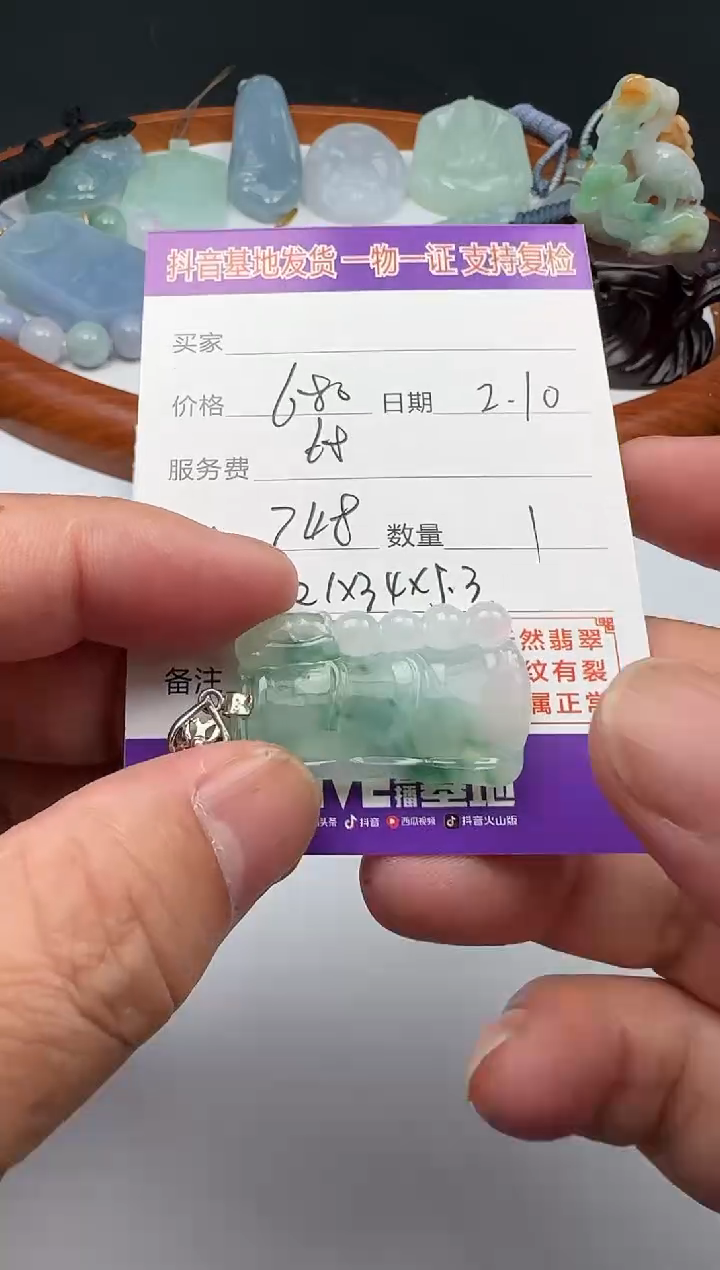 抖音基地发货 一物一证 支持复检
买家
价格 680 日期 2.10
服务费 68
748 数量 1
21x34x5.3
备注
然翡翠
纹有裂
属正常
播基地
头条 抖音 西瓜视频 抖音火山版